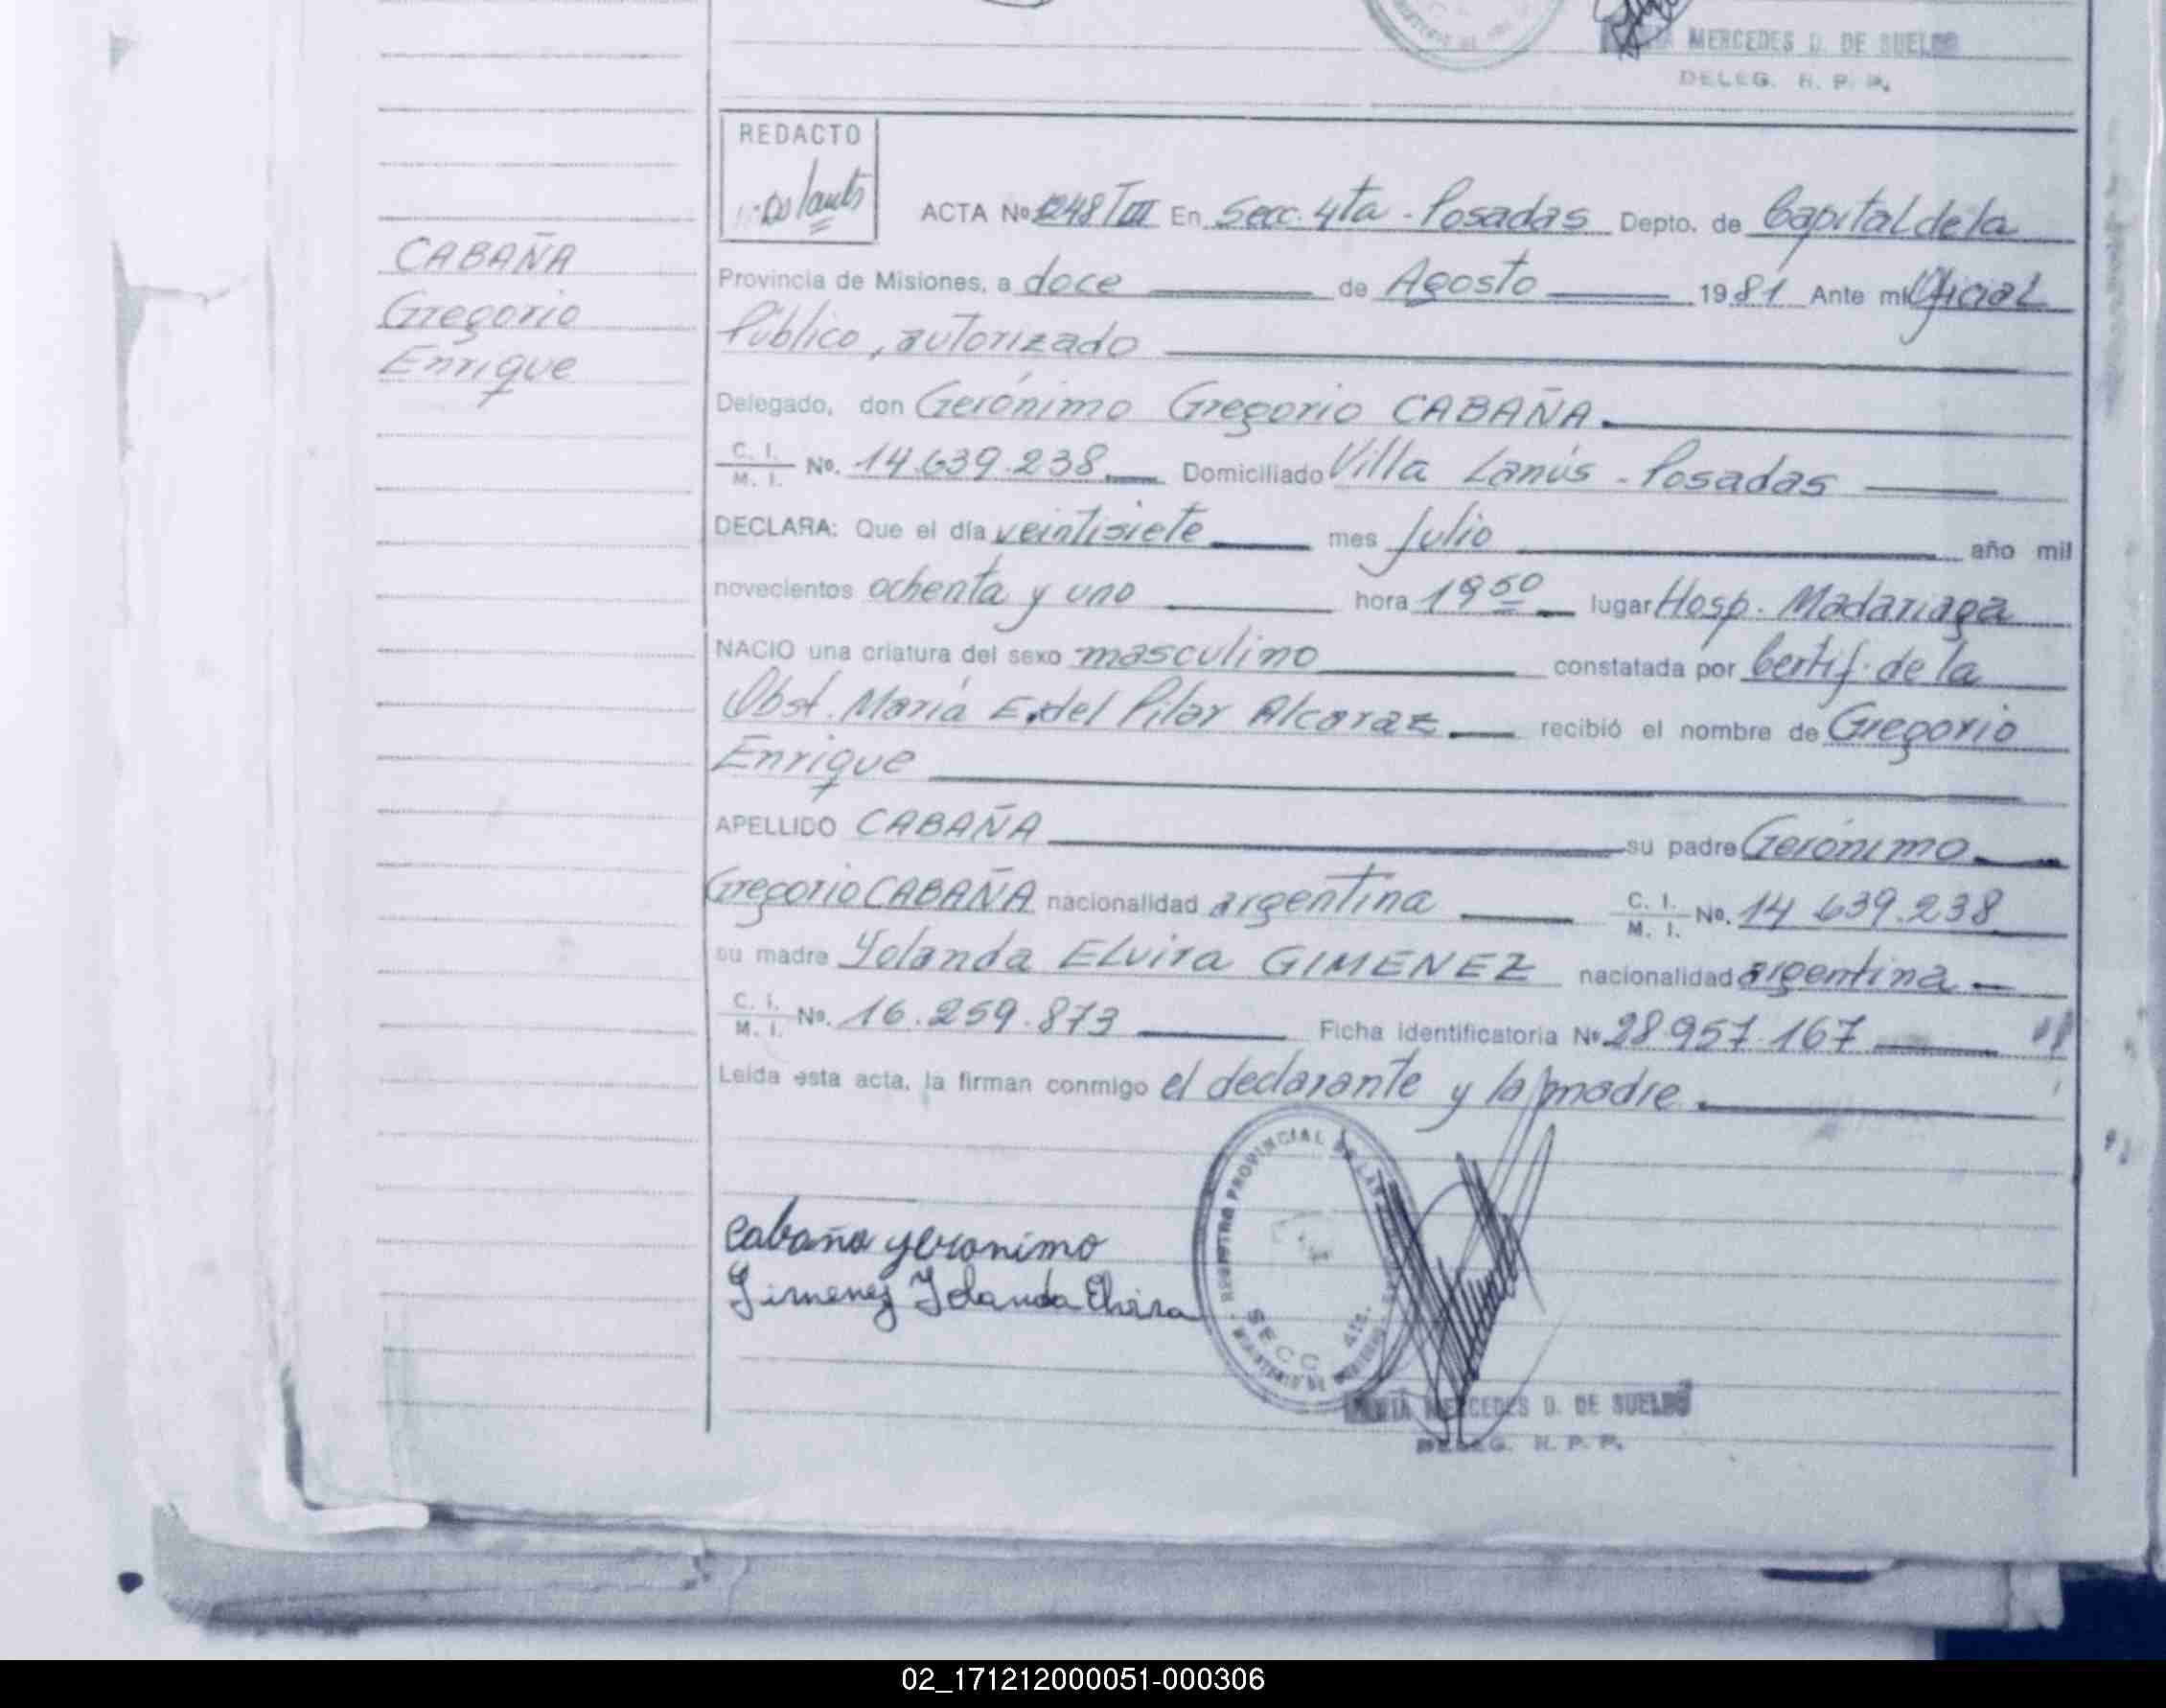 MERCEDES D. DE SUELDO
DELEG. R. P. P.
REDACTO
ACTA Nº 1248/TIII En Secc. 4ta - Posadas Depto. de Capital de la
CABAÑA
Gregorio
Enrique
Provincia de Misiones, a doce de Agosto 1981 Ante mi Oficial
Público, autorizado
Delegado, don Gerónimo Gregorio CABAÑA.
C. I. / M. I. Nº. 14.639.238 Domiciliado Villa Lanús - Posadas
DECLARA: Que el día veintisiete mes Julio año mil
novecientos ochenta y uno hora 19 50 lugar Hosp. Madariaga
NACIO una criatura del sexo masculino constatada por Certif. de la
Obst. María E. del Pilar Alcaraz recibió el nombre de Gregorio
Enrique
APELLIDO CABAÑA su padre Gerónimo
Gregorio CABAÑA nacionalidad argentina C. I. / M. I. Nº. 14.639.238
su madre Yolanda Elvira GIMENEZ nacionalidad argentina
C. I. / M. I. Nº. 16.259.873 Ficha identificatoria Nº 28.957.167
Leída esta acta, la firman conmigo el declarante y la madre
Cabaña geronimo
Gimenez Yolanda Elvira
REGISTRO PROVINCIAL DE LAS
SECC 4ta.
MINISTERIO DE
MARIA MERCEDES D. DE SUELDO
DELEG. R. P. P.
02_171212000051-000306